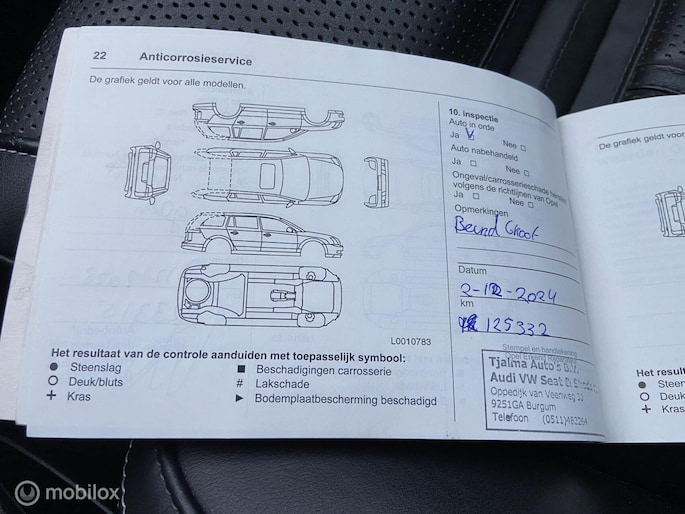 22 Anticorrosieservice
De grafiek geldt voor alle modellen.
L0010783
Het resultaat van de controle aanduiden met toepasselijk symbool:
● Steenslag
○ Deuk/bluts
+ Kras
■ Beschadigingen carrosserie
# Lakschade
► Bodemplaatbescherming beschadigd
10. inspectie
Auto in orde
Ja Nee
Auto nabehandeld
Ja Nee
Ongeval/carrosserieschade
volgens de richtlijnen van Opel
Ja Nee
Opmerkingen
Datum
2-12-2024
km
125332
Stempel en handtekening
Tjalma Auto's B.V.
Audi VW Seat
Oppedijk van Veenweg
9251GA Burgum
Telefoon (0511)
De grafiek geldt voor
Het result
● Steen
○ Deuk
+ Kras
mobilox